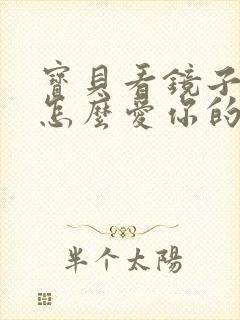 寶貝看鏡子
怎麼愛你的
半个太陽